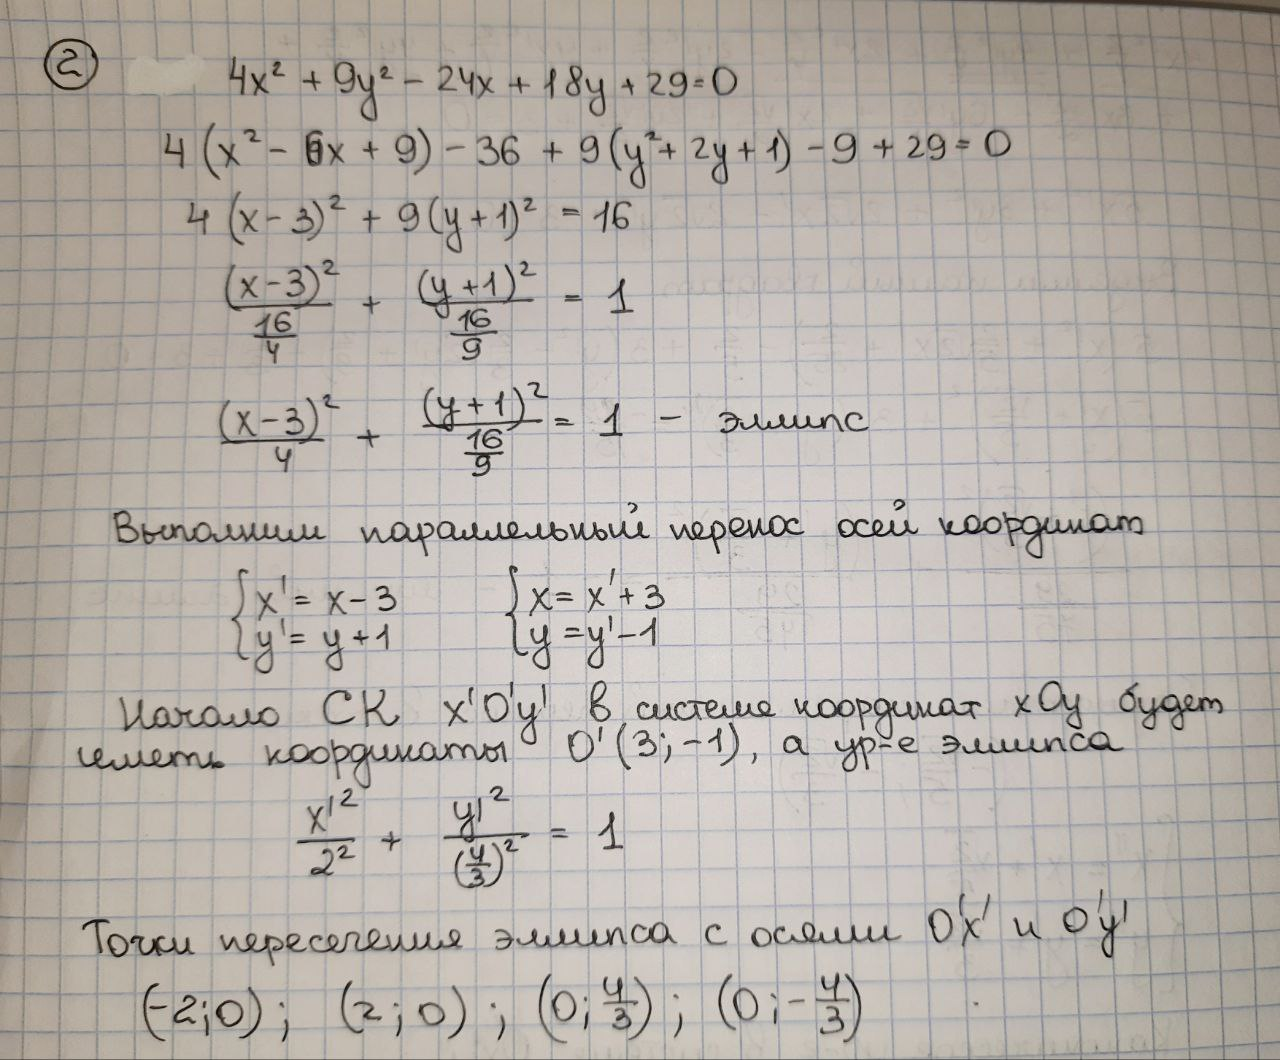 2
4x² + 9y² - 24x + 18y + 29 = 0
4(x² - 6x + 9) - 36 + 9(y² + 2y + 1) - 9 + 29 = 0
4(x-3)² + 9(y+1)² = 16
(x-3)²/(16/4) + (y+1)²/(16/9) = 1
(x-3)²/4 + (y+1)²/(16/9) = 1 - эллипс
Выполним параллельный перенос осей координат
{x' = x-3 {x = x'+3
{y' = y+1 {y = y'-1
Начало СК x'O'y' в системе координат xOy будет
иметь координаты O'(3;-1), а ур-е эллипса
x'²/2² + y'²/(4/3)² = 1
Точки пересечения эллипса с осями O'x' и O'y'
(-2;0); (2;0); (0;4/3); (0;-4/3)